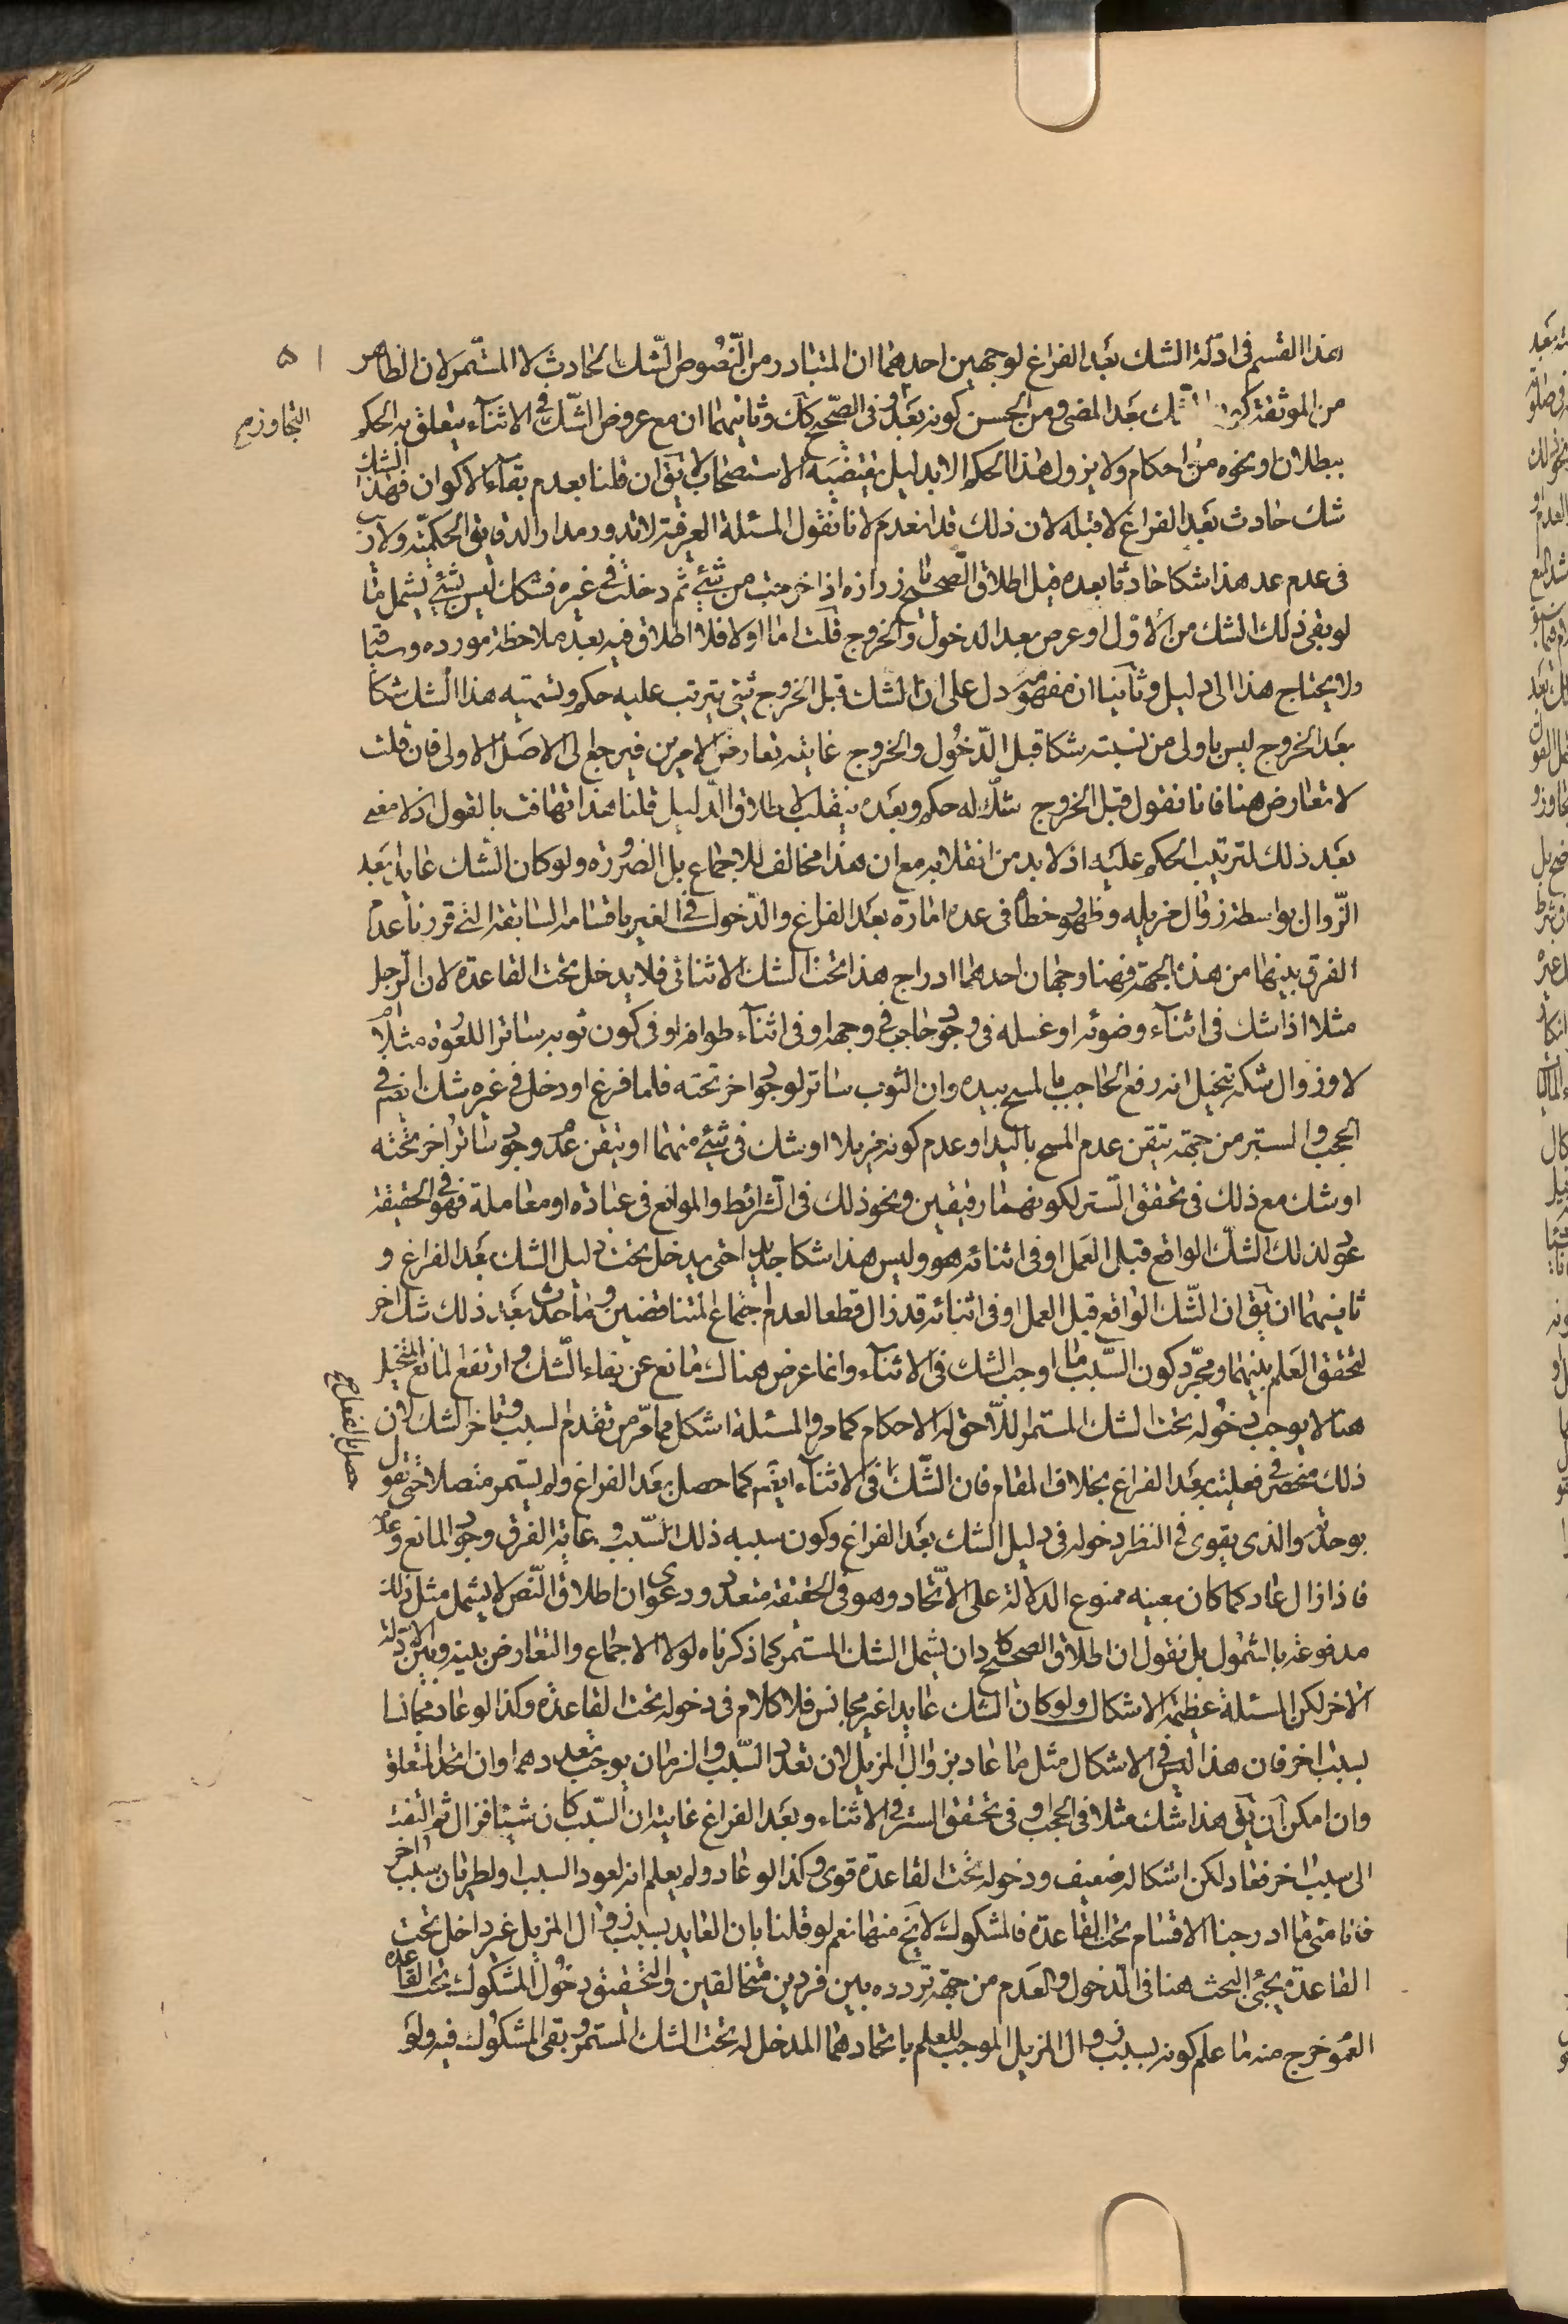 هذا القسم فى ادلة الشك بعد الفراغ لوجهين احديهما ان المتبادر من النصوص الشك الحادث لا المستمر لان الظاهر
٥١
من الموثقة كون الشك بعد المضى ومن الحسن كونه بعد وفى الصحيح كك وثانيهما ان مع عروض الشك فى الاثناء يتعلق به الحكم
التجاوز صح
ببطلان او نحوه من احكام ولا يزول هذا الحكم الا بدليل يقتضيه الاستصحاب لا يق ان قلنا بعدم بقاء الاكوان فهذا الشك
شك حادث بعد الفراغ لا قبله لان ذلك قد انعدم لانا نقول المسئلة العرفية لا تدور مدار الدقايق الحكمية ولا ريب
فى عدم عد هذا شكا حادثا بعده قيل اطلاق الصحيح يا زرارة اذا خرجت من شئ ثم دخلت فى غيره فشكك ليس بشئ يشمل ما
لو بقى ذلك الشك من الاول او عرض بعد الدخول والخروج قلت اما اولا فلا اطلاق فيه بعد ملاحظة مورده وسياقها
ولا يحتاج هذا الى دليل وثانيا ان مفهومه دل على ان الشك قبل الخروج شئ يترتب عليه حكم وتسميته هذا الشك شكا
بعد الخروج ليس باولى من تسبته شكا قبل الدخول والخروج غايته تعارض الامرين فيرجع الى الاصل الاولى فان قلت
لا تعارض هنا فانا نقول قبل الخروج شك له حكم وبعده ينقلب لاطلاق الدليل قلنا هذا تهافت بالقول اذ لا معنى
بعد ذلك لترتيب الحكم عليه اذ لا بد من انقلابه مع ان هذا مخالف للاجماع بل الضرورة ولو كان الشك عايدا بعد
الزوال بواسطة زوال مزيله وظهور خطأ فى عده امارة بعد الفراغ والدخول فى الغير باقسامه السابقة التى قررنا عدم
الفرق بينها من هذه الجهة فهنا وجهان احدهما ادراج هذا تحت الشك الاثنائى فلا يدخل تحت القاعدة لان الرجل
مثلا اذا شك فى اثناء وضوئه او غسله فى وجود حاجب فى وجهه او فى اثناء طوافه او فى كون ثوبه ساترا للعورة مثلا ام
لا وزوال شكه بتخيل انه رفع الحاجب بالمسح بيده وان الثوب ساتر لوجود اخر تحته فلما فرغ او دخل فى غيره شك ايضم فى
الحجب والستر من جهة تيقن عدم المسح باليد او عدم كونه مزيلا او شك فى شئ منهما او تيقن عدم وجود ساتر اخر تحته
او شك مع ذلك فى تحقق الستر لكونهما رقيقين ونحو ذلك فى الشرائط والموانع فى عبادة او معاملة فهو فى الحقيقة
عود لذلك الشك الواقع قبل العمل او فى اثنائه هو وليس هذا شكا جديدا حتى يدخل تحت دليل الشك بعد الفراغ و
ثانيهما ان يق ان الشك الواقع قبل العمل او فى اثنائه قد زال قطعا لعدم اجتماع المتناقضين وما حدث بعد ذلك شك اخر
لتحقق العلم بينهما ومجرد كون السبب ما اوجب الشك فى الاثناء وانما عرض هناك مانع عن بقاء الشك وارتفع المانع المتخيل
هنا لا يوجب دخوله تحت الشك المستمر للاحق له الاحكام كما مر والمسئلة اشكل مما مر من تقدم لسبب وتاخر الشك لان
ذلك منحصر فى فعليته بعد الفراغ بخلاف المقام فان الشك فى الاثناء ايضم كما حصل بعد الفراغ ولم يستمر متصلا حتى نقول
حصل بالفعل صح
بوحدته والذى يقوى فى النظر دخوله فى دليل الشك بعد الفراغ وكون سببه ذلك السبب وغاية الفرق وجود المانع وعدمه
فاذا زال عاد كما كان بعينه ممنوع الدلالة على الاتحاد وهو فى الحقيقة متعدد ودعوى ان اطلاق النص لا يشمل مثل ذلك
مدفوعة بالشمول بل نقول ان اطلاق الصحيح كاد ان يشمل الشك المستمر كما ذكرناه لولا الاجماع والتعارض بينه وبين الادلة
الاخر لكن المسئلة عظيمة الاشكال ولو كان الشك عايدا غير مجانس فلا كلام فى دخوله تحت القاعدة وكذا لو عاد مجانسا
بسبب اخر فان هذا ليس فى الاشكال مثل ما عاد بزوال المزيل لان تعدد السبب والزمان يوجب تعددهما وان اتحد المتعلق
وان امكن ان يق هذا شك مثلا فى الحجب او فى تحقق الستر فى الاثناء وبعد الفراغ غايته ان السبب كان شيئا فزال ثم التفت
الى سبب اخر فعاد لكن اشكاله ضعيف ودخوله تحت القاعدة قوى وكذا لو عاد ولم يعلم انه لعود السبب او لطريان سبب اخر
فانا متى ما ادرجنا الاقسام تحت القاعدة فالمشكوك لا يخ منهما نعم لو قلنا بان العايد بسبب زوال المزيل غير داخل تحت
القاعدة يجئ البحث هنا فى الدخول والعدم من جهة تردده بين فردين متخالفين والتحقيق دخول المشكوك تحت القاعدة
العموم خرج منه ما علم كونه بسبب زوال المزيل الموجب للعلم باتحادهما المدخل له تحت الشك المستمر وبقى المشكوك فيه ولو